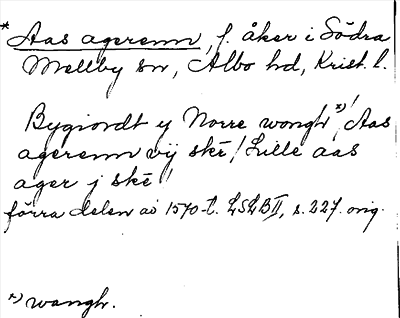 * Aas agerenn, f. åker i Södra
Mellby sn, Albo hd, Krist. l.
Bygiordt y Norre wongh *)! Aas
agerenn vij skē! Lille aas
ager j skē!
förra delen av 1570-t. LSLB II, s. 227. orig.
*) wangh.